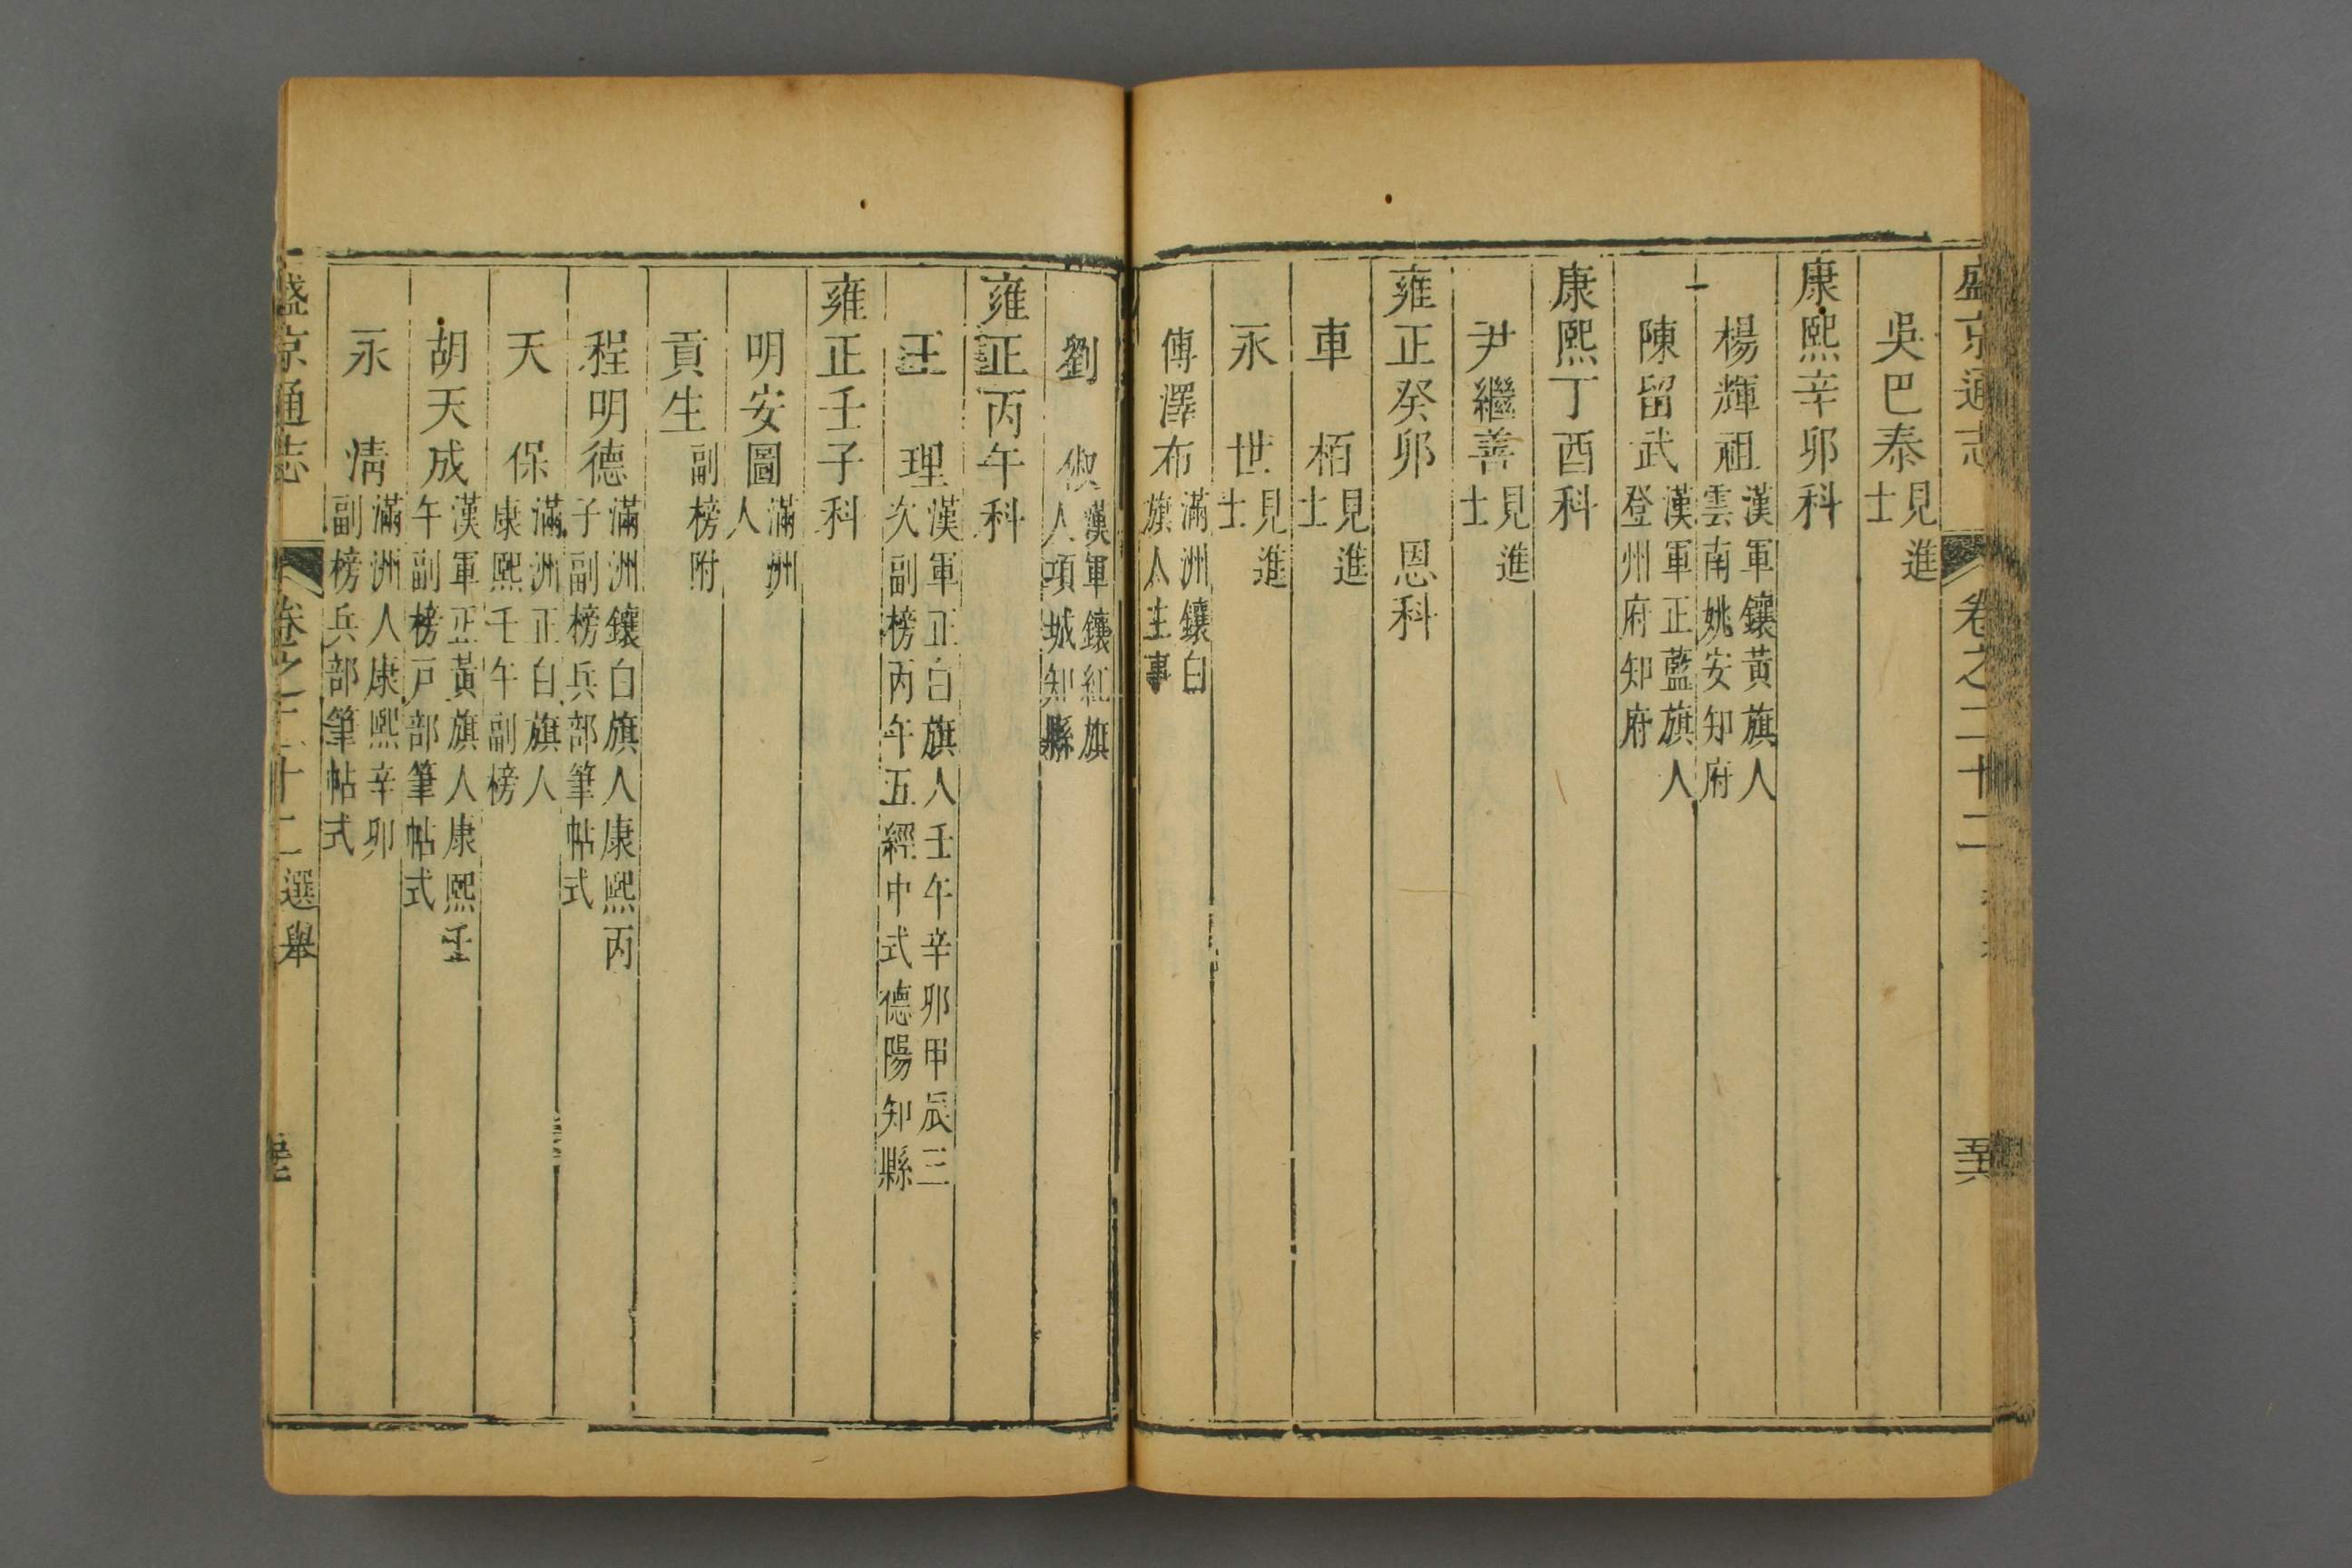 盛京通志 卷之三十二 五六
吳巴泰見進士
康熙辛卯科
楊輝祖漢軍鑲黃旗人雲南姚安知府
陳留武漢軍正藍旗人登州府知府
康熙丁酉科
尹繼善見進士
雍正癸卯 恩科
車 栢見進士
永 世見進士
傅澤布滿洲鑲白旗人主事
劉 漢軍鑲紅旗人項城知縣
雍正丙午科
王 理漢軍正白旗人壬午辛卯甲辰三次副榜丙午五經中式德陽知縣
雍正壬子科
明安圖滿洲人
貢生副榜附
程明德滿洲鑲白旗人康熙丙子副榜兵部筆帖式
天 保滿洲正白旗人康熙壬午副榜
胡天成漢軍正黃旗人康熙壬午副榜戸部筆帖式
永 清滿洲人康熙辛卯副榜兵部筆帖式
盛京通志 卷之三十二選舉